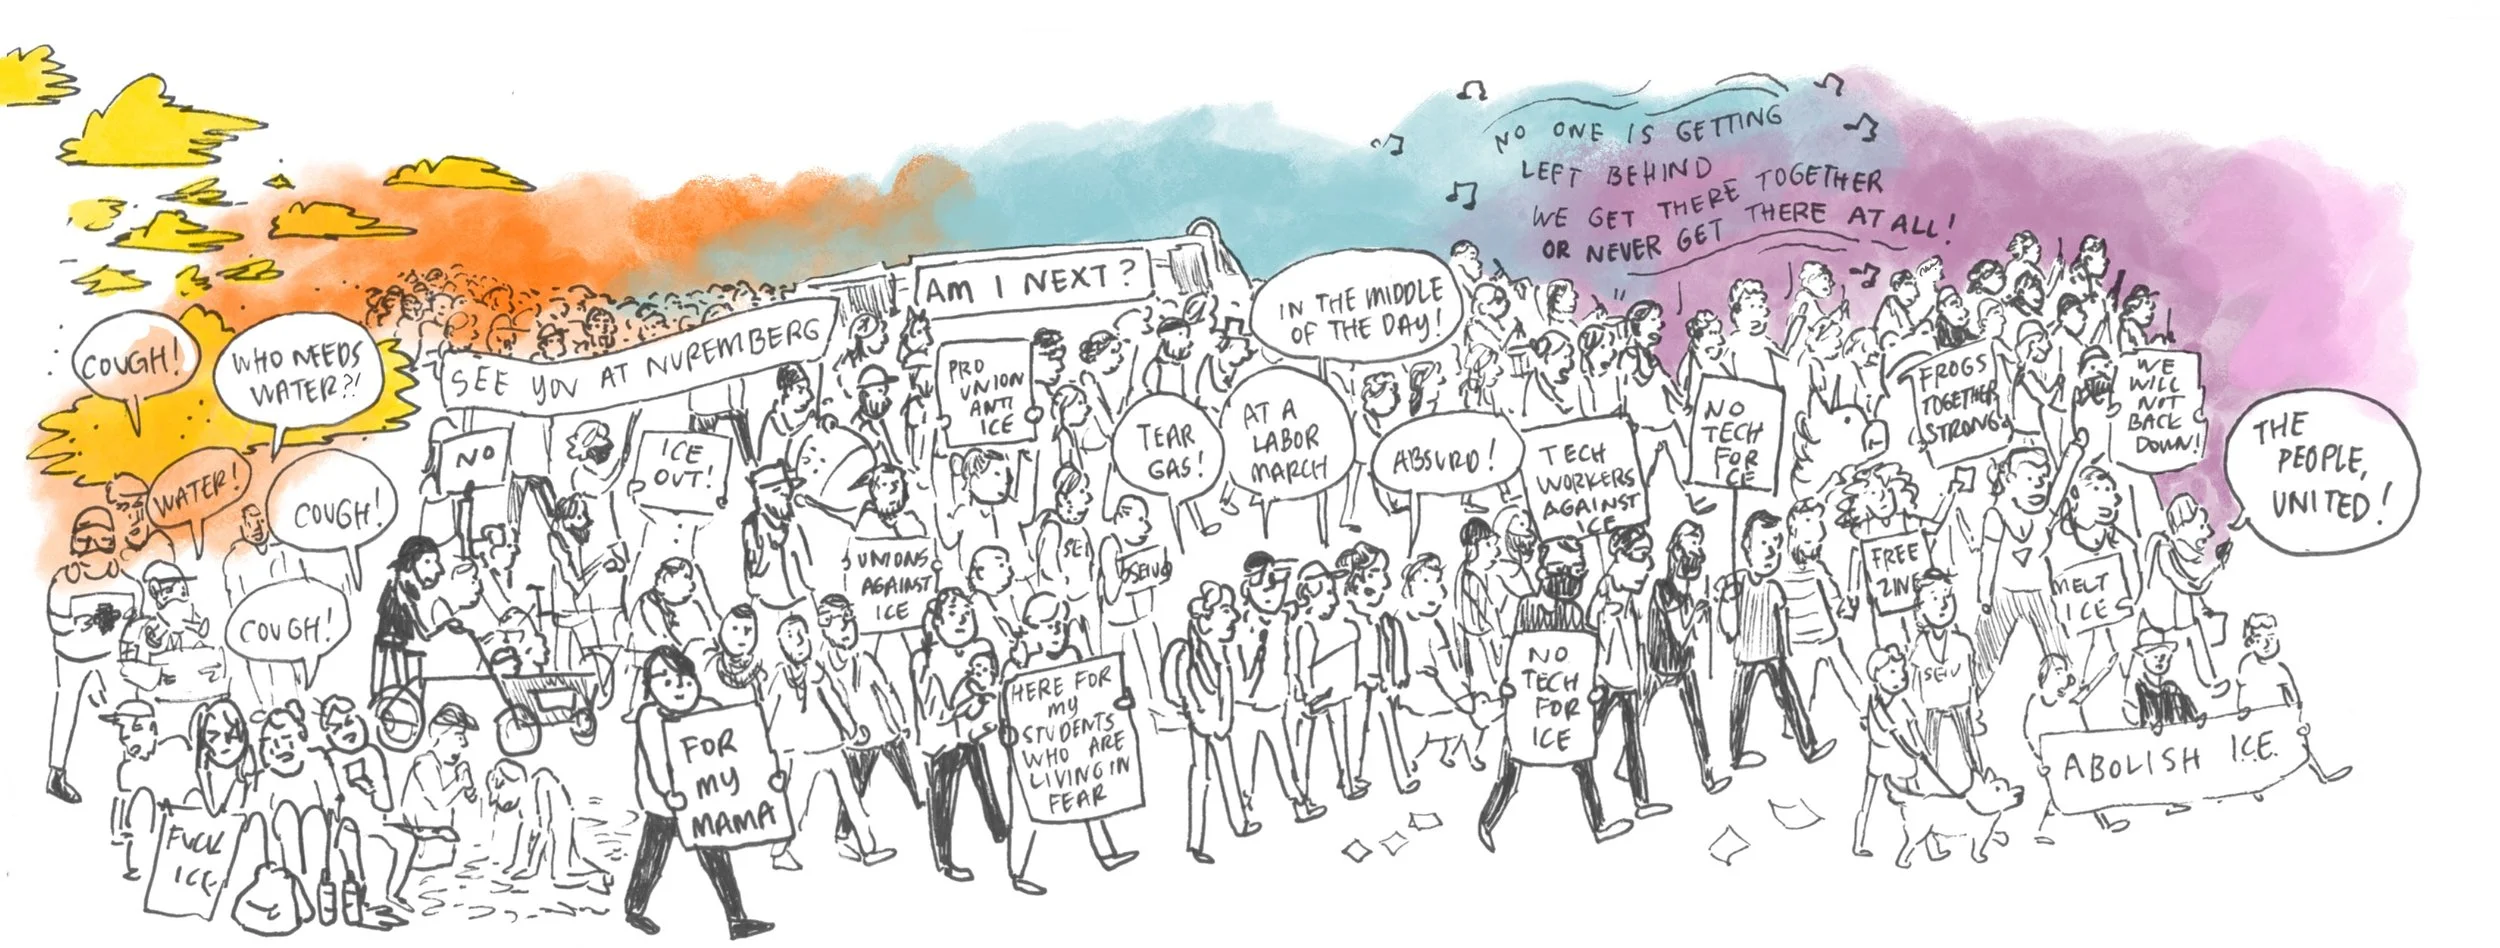 COUGH!
WHO NEEDS
WATER?!
WATER!
COUGH!
COUGH!
FUCK
ICE
SEE YOU AT NUREMBERG
NO
ICE
OUT!
AM I NEXT?
PRO
UNION
ANTI
ICE
UNIONS
AGAINST
ICE
SEIU
FOR
MY
MAMA
HERE FOR
MY
STUDENTS
WHO ARE
LIVING IN
FEAR
TEAR
GAS!
AT A
LABOR
MARCH
IN THE MIDDLE
OF THE DAY!
ABSURD!
NO ONE IS GETTING
LEFT BEHIND
WE GET THERE TOGETHER
OR NEVER GET THERE AT ALL!
TECH
WORKERS
AGAINST
ICE
NO
TECH
FOR
ICE
NO
TECH
FOR
ICE
FROGS
TOGETHER
STRONG
WE
WILL
NOT
BACK
DOWN!
FREE
ZINE
SEIU
MELT
ICE
THE
PEOPLE,
UNITED!
ABOLISH ICE